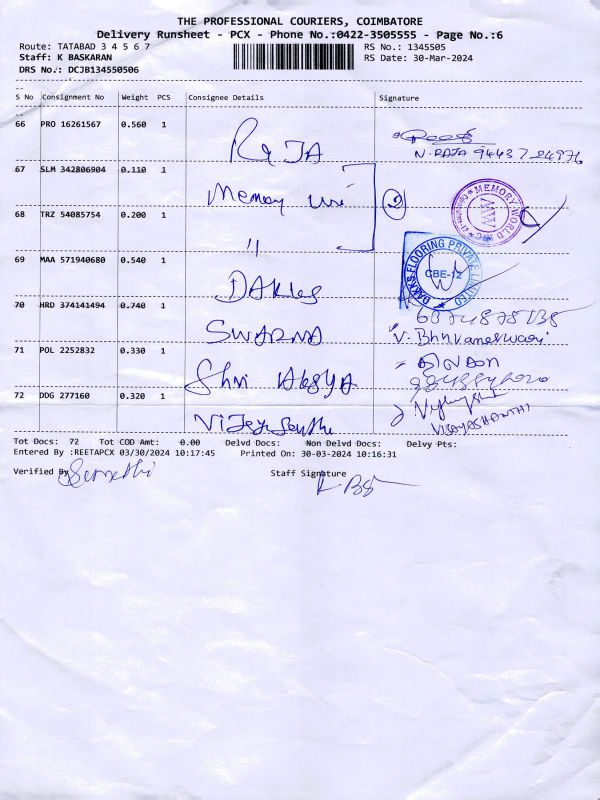 THE PROFESSIONAL COURIERS, COIMBATORE
Delivery Runsheet - PCX - Phone No.:0422-3505555 - Page No.:6
Route: TATABAD 3 4 5 6 7 RS No.: 1345505
Staff: K BASKARAN RS Date: 30-Mar-2024
DRS No.: DCJB134550506
S No Consignment No Weight PCS Consignee Details Signature
66 PRO 16261567 0.560 1 RaJA
N. RAJA 94437 24976
67 SLM 342806904 0.110 1 Memory 2 MEMORY WORLD INC
68 TRZ 54085754 0.200 1 "
69 MAA 571940680 0.540 1 DAkkes DAKKS FLOORING PRIVATE LIMITED CBE-12
70 HRD 374141494 0.740 1 SWARNA V. Bhuvaneswari
71 POL 2252832 0.330 1 Shri
72 DDG 277160 0.320 1 VIJAYASHANTHI
Tot Docs: 72 Tot COD Amt: 0.00 Delvd Docs: Non Delvd Docs: Delvy Pts:
Entered By :REETAPCX 03/30/2024 10:17:45 Printed On: 30-03-2024 10:16:31
Verified By Staff Signature